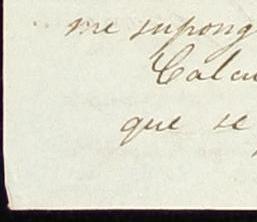 me supong
Calcu
que se